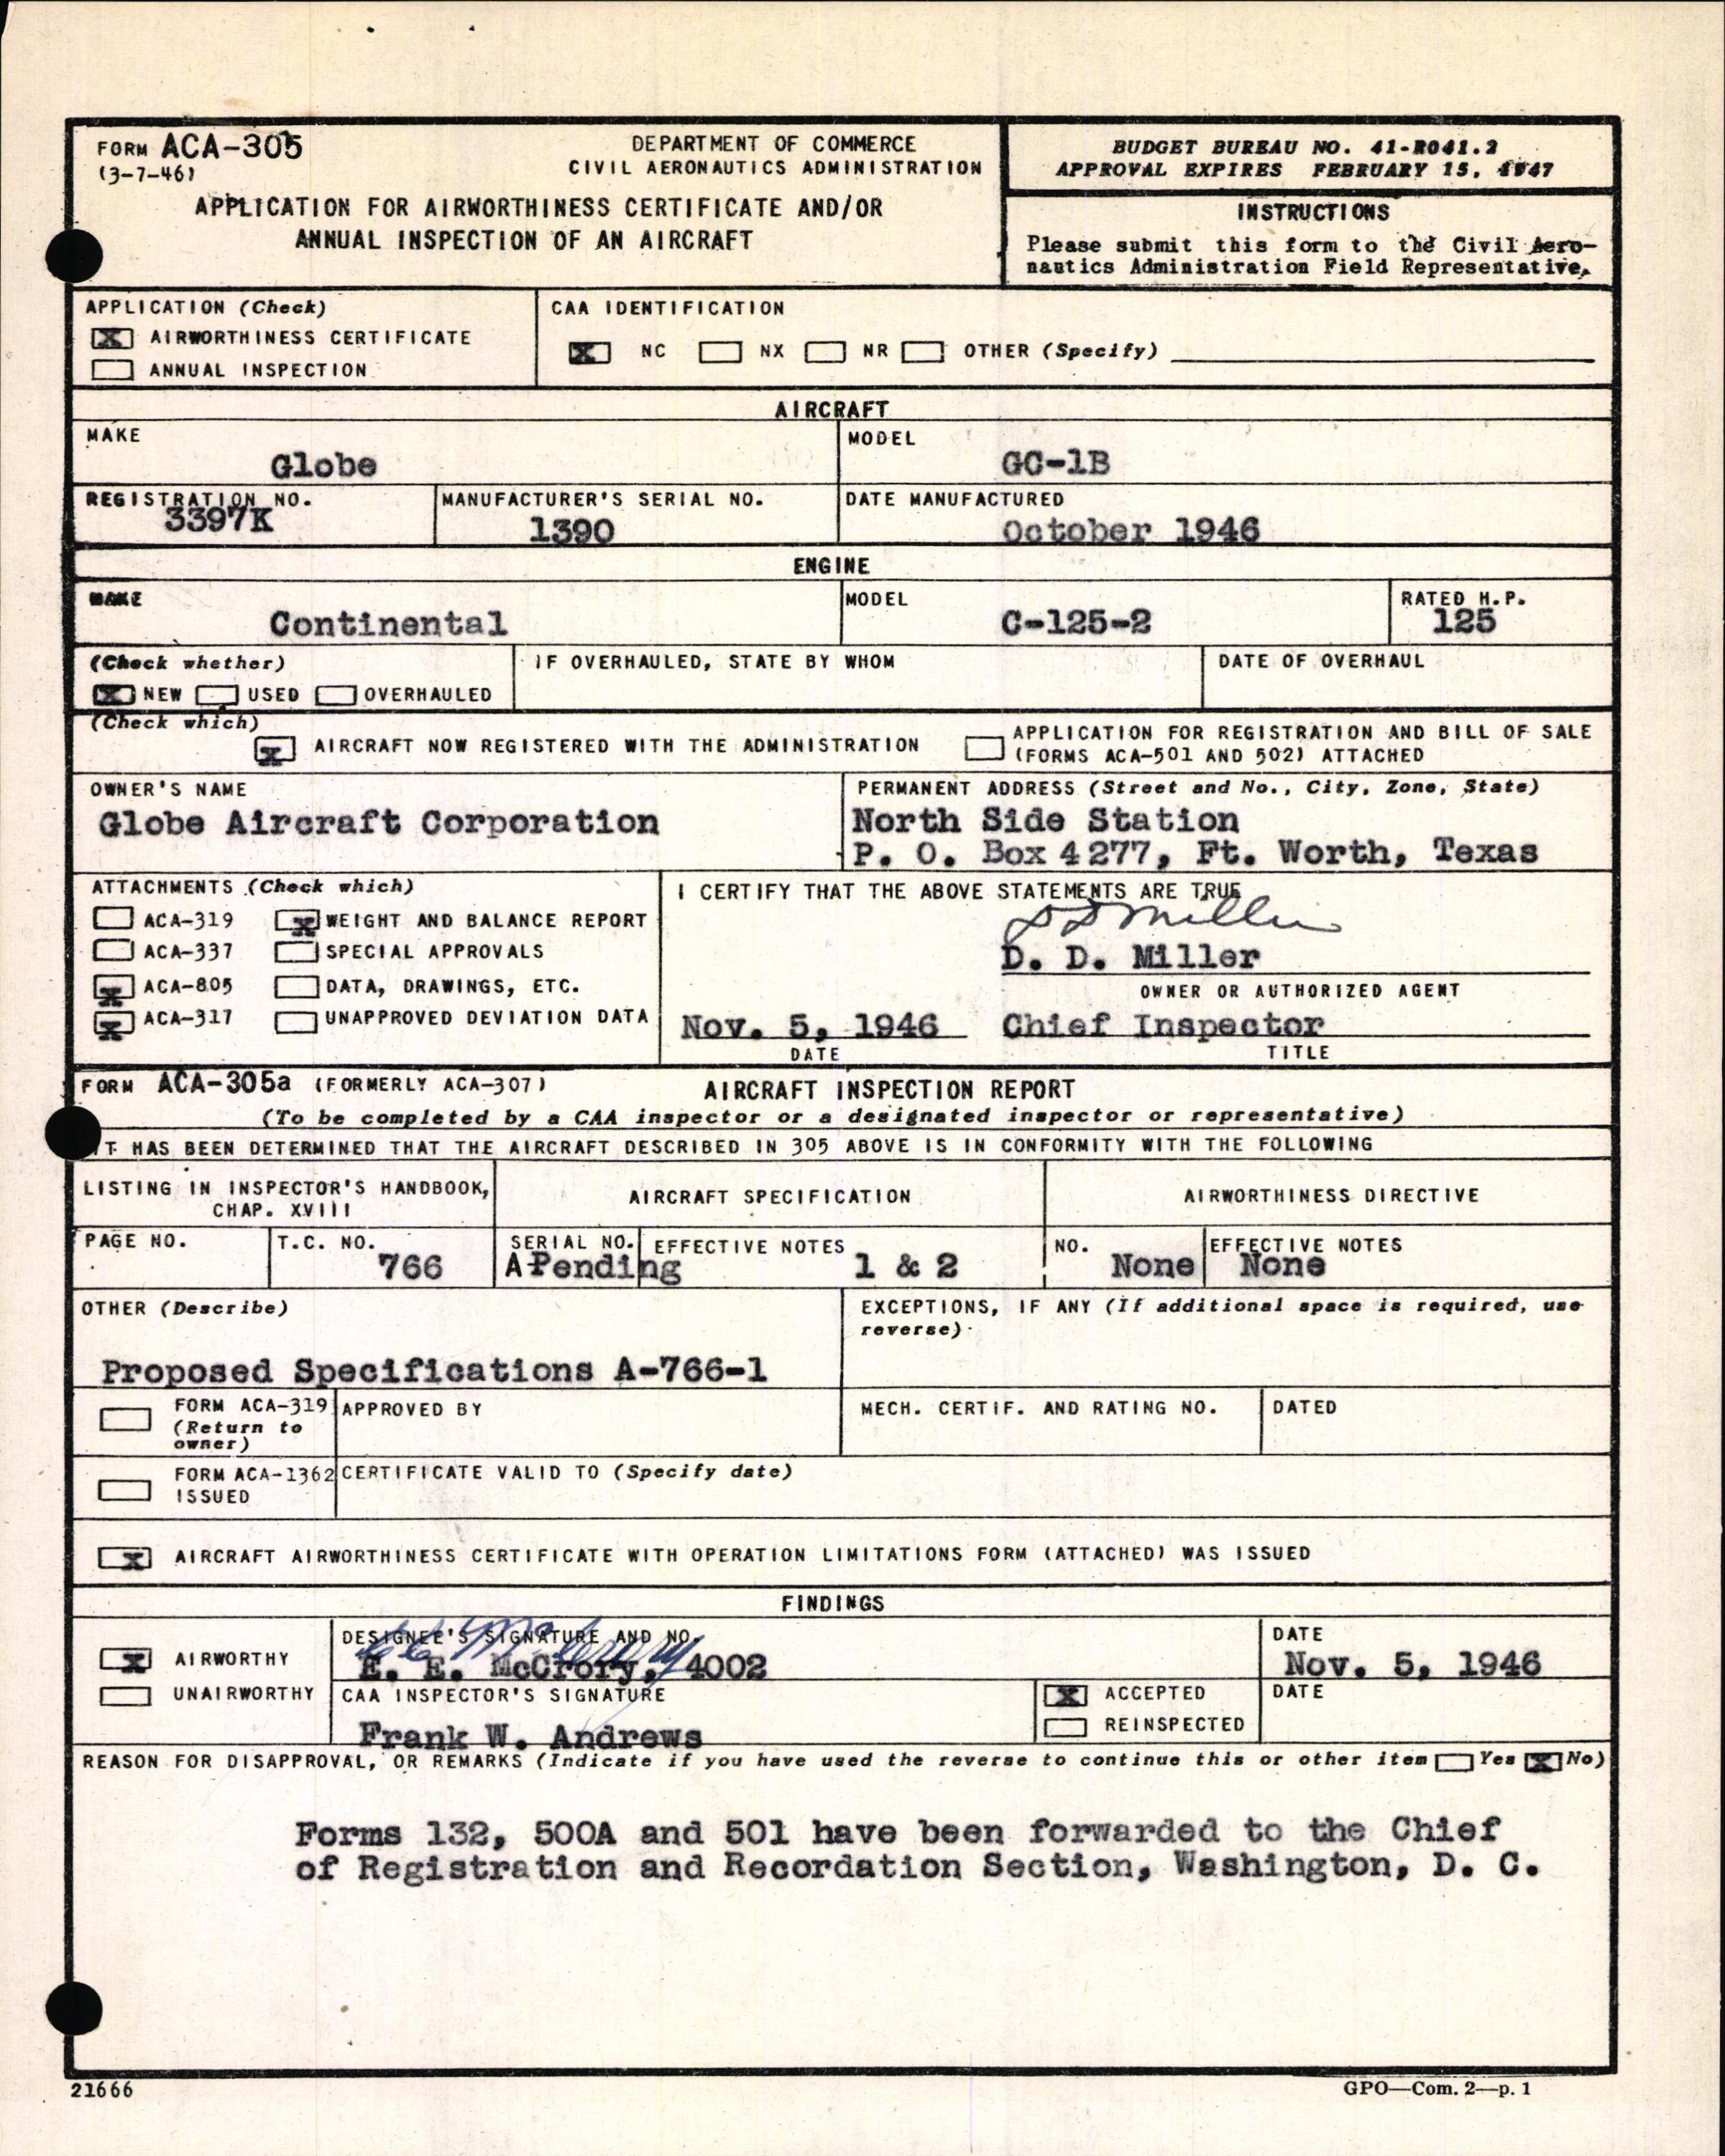 FORM ACA-305
(3-7-46)
DEPARTMENT OF COMMERCE
CIVIL AERONAUTICS ADMINISTRATION
APPLICATION FOR AIRWORTHINESS CERTIFICATE AND/OR
ANNUAL INSPECTION OF AN AIRCRAFT
BUDGET BUREAU NO. 41-R041.2
APPROVAL EXPIRES FEBRUARY 15, 1947
INSTRUCTIONS
Please submit this form to the Civil Aero-
nautics Administration Field Representative.
APPLICATION (Check)
X AIRWORTHINESS CERTIFICATE
ANNUAL INSPECTION
CAA IDENTIFICATION
X NC NX NR OTHER (Specify)
AIRCRAFT
MAKE
Globe
MODEL
GC-1B
REGISTRATION NO.
3397K
MANUFACTURER'S SERIAL NO.
1390
DATE MANUFACTURED
October 1946
ENGINE
MAKE
Continental
MODEL
C-125-2
RATED H.P.
125
(Check whether)
X NEW USED OVERHAULED
IF OVERHAULED, STATE BY WHOM
DATE OF OVERHAUL
(Check which)
X AIRCRAFT NOW REGISTERED WITH THE ADMINISTRATION
APPLICATION FOR REGISTRATION AND BILL OF SALE
(FORMS ACA-501 AND 502) ATTACHED
OWNER'S NAME
Globe Aircraft Corporation
PERMANENT ADDRESS (Street and No., City, Zone, State)
North Side Station
P. O. Box 4277, Ft. Worth, Texas
ATTACHMENTS (Check which)
ACA-319 X WEIGHT AND BALANCE REPORT
ACA-337 SPECIAL APPROVALS
X ACA-805 DATA, DRAWINGS, ETC.
X ACA-317 UNAPPROVED DEVIATION DATA
I CERTIFY THAT THE ABOVE STATEMENTS ARE TRUE
D D Miller
D. D. Miller
OWNER OR AUTHORIZED AGENT
Nov. 5, 1946 Chief Inspector
DATE TITLE
FORM ACA-305a (FORMERLY ACA-307) AIRCRAFT INSPECTION REPORT
(To be completed by a CAA inspector or a designated inspector or representative)
IT HAS BEEN DETERMINED THAT THE AIRCRAFT DESCRIBED IN 305 ABOVE IS IN CONFORMITY WITH THE FOLLOWING
LISTING IN INSPECTOR'S HANDBOOK,
CHAP. XVIII
AIRCRAFT SPECIFICATION
AIRWORTHINESS DIRECTIVE
PAGE NO.
T.C. NO.
766
SERIAL NO.
A-Pending
EFFECTIVE NOTES
1 & 2
NO.
None
EFFECTIVE NOTES
None
OTHER (Describe)
Proposed Specifications A-766-1
EXCEPTIONS, IF ANY (If additional space is required, use
reverse)
FORM ACA-319
(Return to
owner)
APPROVED BY
MECH. CERTIF. AND RATING NO.
DATED
FORM ACA-1362
ISSUED
CERTIFICATE VALID TO (Specify date)
X AIRCRAFT AIRWORTHINESS CERTIFICATE WITH OPERATION LIMITATIONS FORM (ATTACHED) WAS ISSUED
FINDINGS
X AIRWORTHY
UNAIRWORTHY
DESIGNEE'S SIGNATURE AND NO.
E E McCrory
E. E. McCrory, 4002
DATE
Nov. 5, 1946
CAA INSPECTOR'S SIGNATURE
Frank W. Andrews
X ACCEPTED
REINSPECTED
DATE
REASON FOR DISAPPROVAL, OR REMARKS (Indicate if you have used the reverse to continue this or other item Yes X No)
Forms 132, 500A and 501 have been forwarded to the Chief
of Registration and Recordation Section, Washington, D. C.
21666
GPO—Com. 2—p. 1